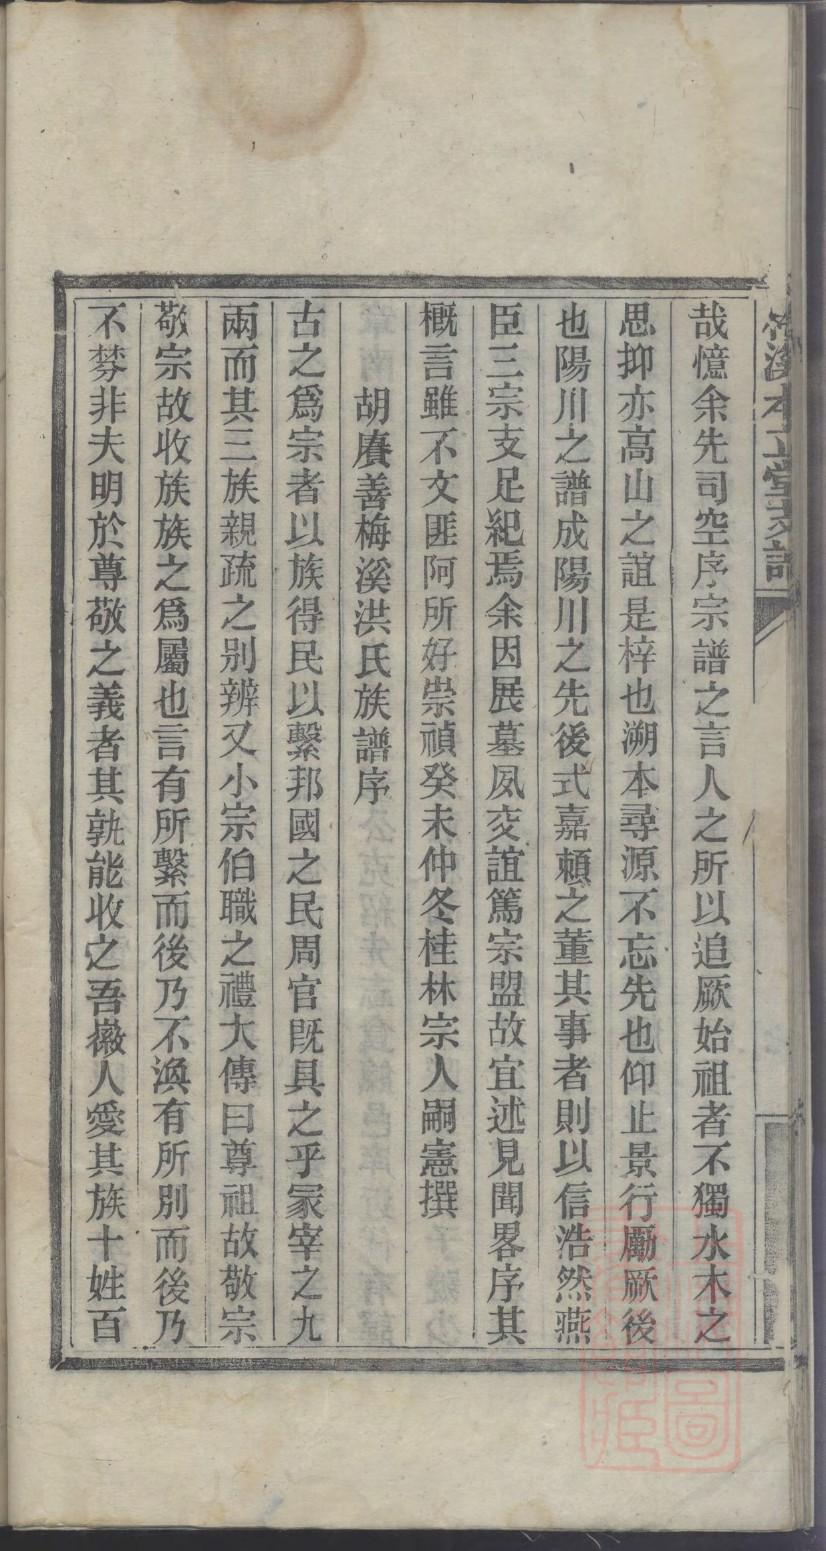 溪本立堂支譜
哉憶余先司空序宗譜之言人之所以追厥始祖者不獨水木之
思抑亦高山之誼是梓也溯本尋源不忘先也仰止景行勵厥後
也陽川之譜成陽川之先後式嘉賴之董其事者則以信浩然燕
臣三宗支足紀焉余因展墓夙交誼篤宗盟故宜述見聞畧序其
概言雖不文匪阿所好崇禎癸未仲冬桂林宗人嗣憲撰
胡賡善梅溪洪氏族譜序
古之爲宗者以族得民以繫邦國之民周官旣具之乎冢宰之九
兩而其三族親疏之別辨又小宗伯職之禮大傳曰尊祖故敬宗
敬宗故收族族之爲屬也言有所繫而後乃不渙有所別而後乃
不棼非夫明於尊敬之義者其孰能收之吾徽人愛其族十姓百